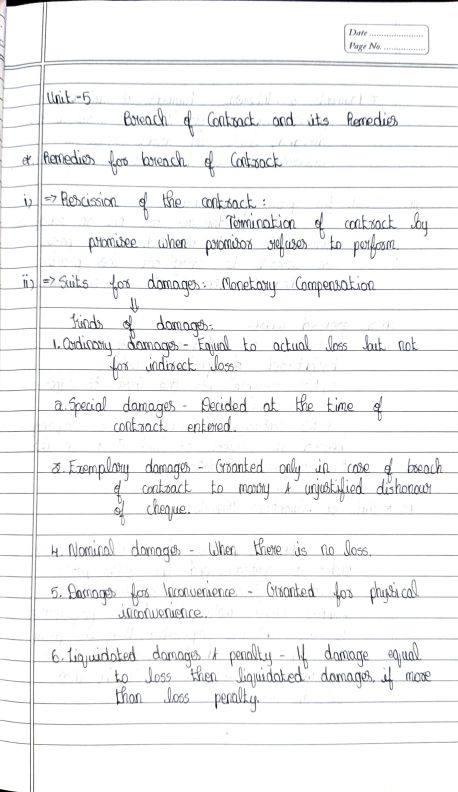 Date ...................
Page No. ..............
Unit-5
Breach of Contract and its Remedies
* Remedies for breach of Contract
i) => Rescission of the contract :
Termination of contract by
promisee when promisor refuses to perform.
ii) => Suits for damages: Monetary Compensation
⇓
Kinds of damages:
1. Ordinary damages - Equal to actual loss but not
for indirect loss.
2. Special damages - Decided at the time of
contract entered.
3. Exemplary damages - Granted only in case of breach
of contract to marry & unjustified dishonour
of cheque.
4. Nominal damages - When there is no loss.
5. Damages for Inconvenience - Granted for physical
inconvenience.
6. Liquidated damages & penalty - If damage equal
to loss then liquidated damages, if more
than loss penalty.